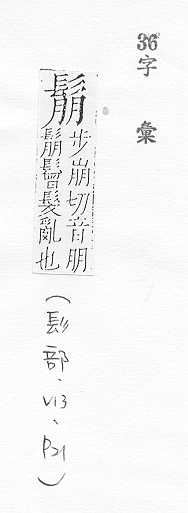 36字彙
鬅
步崩切音朋
鬅鬙髮亂也
(髟部、V13、P21)